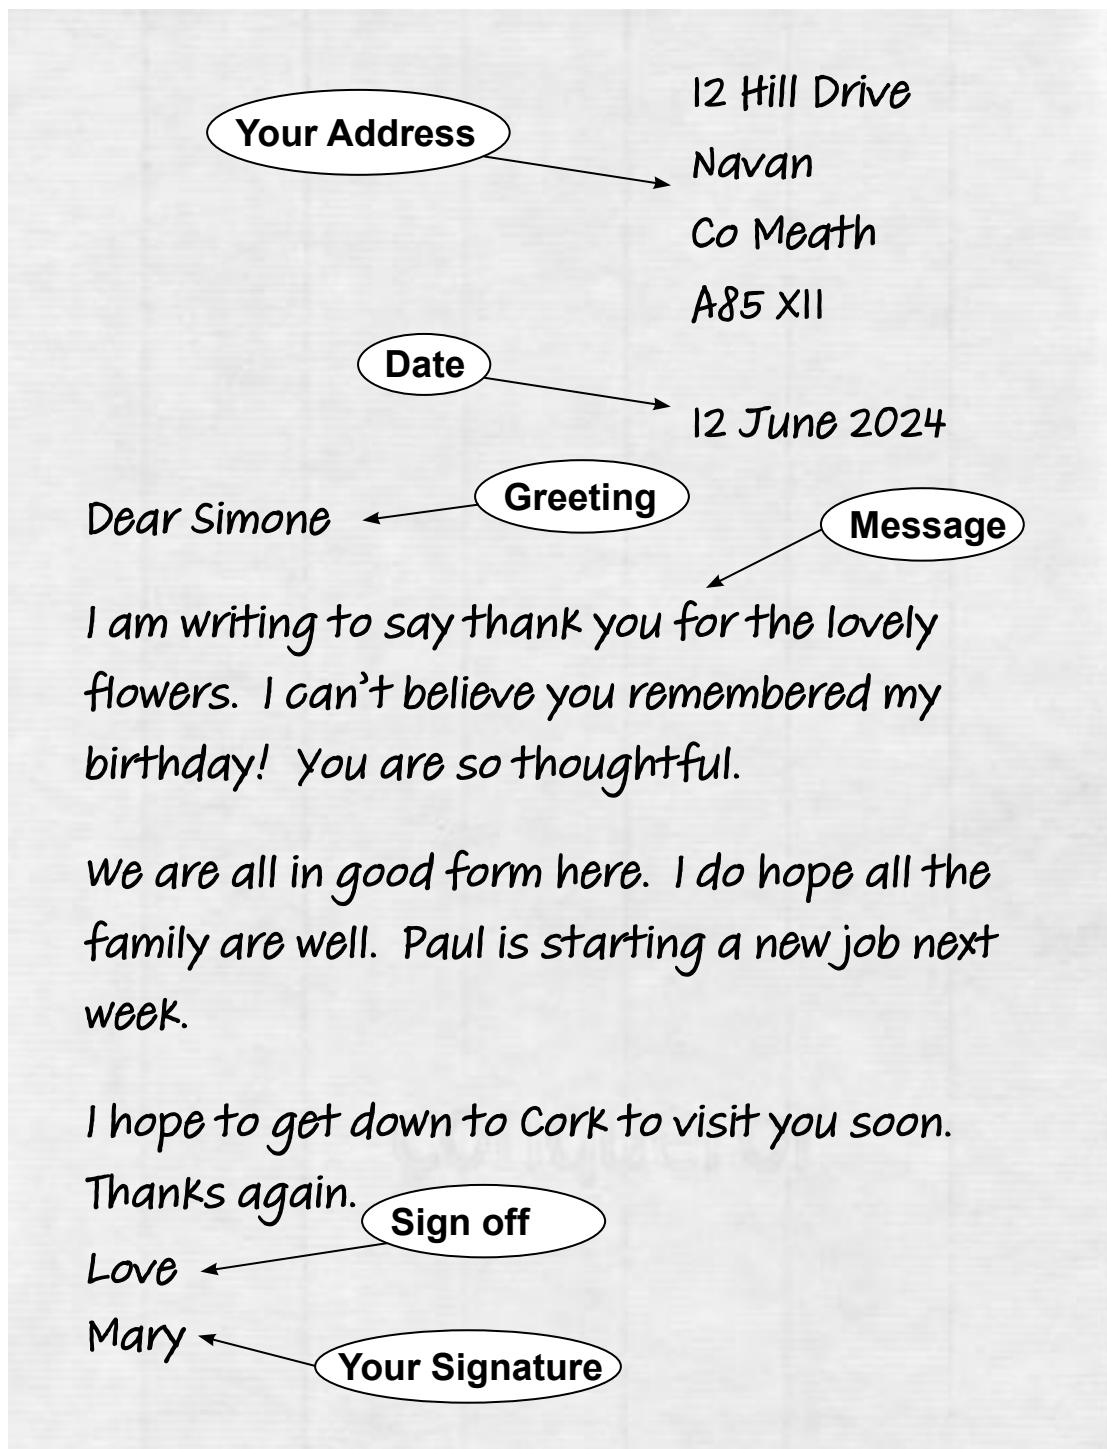 12 Hill Drive
Your Address
Navan
Co Meath
A85 X11
Date
12 June 2024
Greeting
Message
Dear Simone
I am writing to say thank you for the lovely
flowers. I can't believe you remembered my
birthday! You are so thoughtful.
We are all in good form here. I do hope all the
family are well. Paul is starting a new job next
week.
I hope to get down to Cork to visit you soon.
Thanks again.
Sign off
Love
Mary
Your Signature